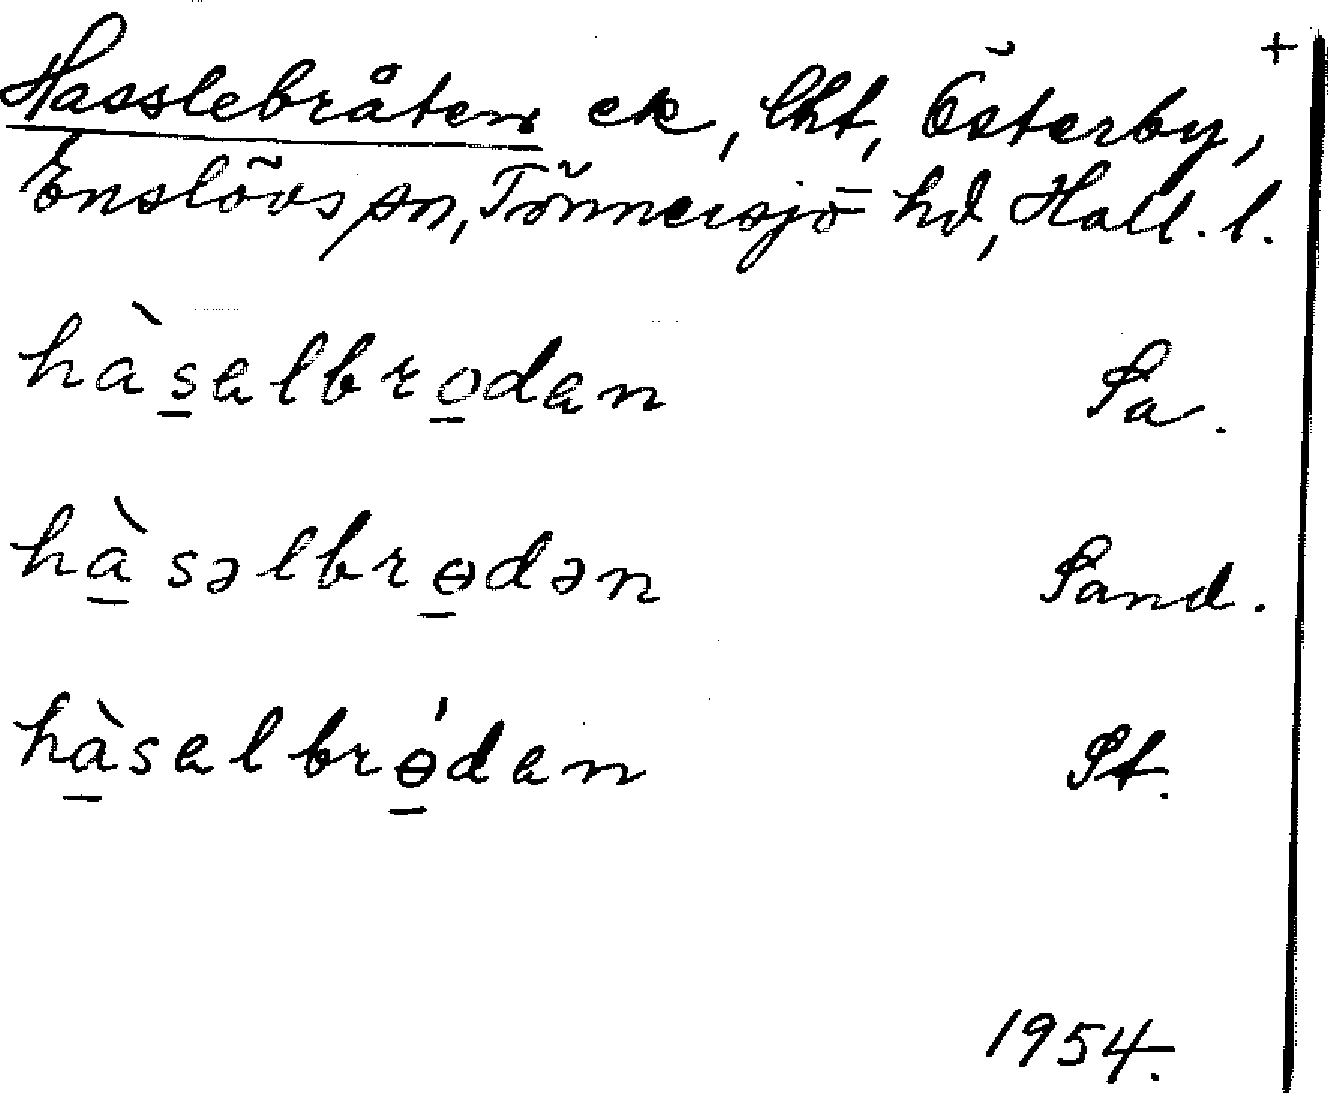 +
Hasslebråten ek, lht, Österby,
Enslövs sn, Tönnersjö hd, Hall. l.
hàs̲albro̲dan Sa.
hà̲səlbrɵ̲dən Sand.
hà̲salbrɵ̲́dan St.
1954.